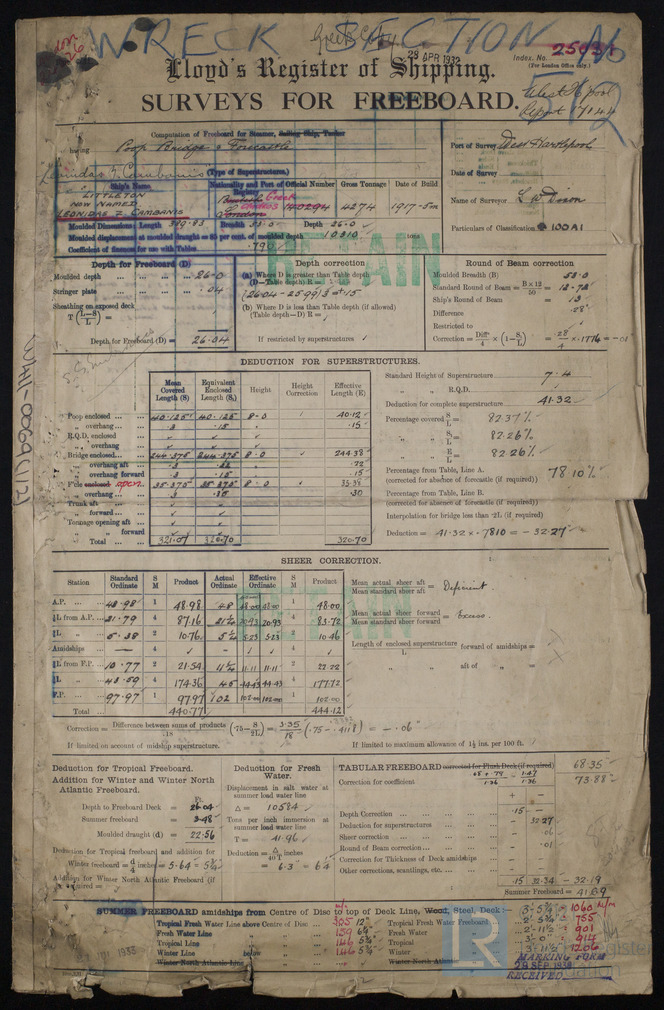 WRECK SECTION No
28 APR 1932
Index. No.
(For London Office only.)
Lloyd's Register of Shipping.
SURVEYS FOR FREEBOARD.
West Hpool
Report
Computation of Freeboard for Steamer, Sailing Ship, Tanker
having Poop Bridge & Forecastle
Leonidas Z. Cambanis (Type of Superstructures.)
Port of Survey West Hartlepool
Date of Survey
Name of Surveyor L W Dixon
Particulars of Classification 100A1
Ship's Name Nationality and Port of Registry Official Number Gross Tonnage Date of Build
LITTLETON
NOW NAMED
LEONIDAS Z CAMBANIS
British Greek
London 140294 4274 1917-5
Moulded Dimensions: Length 389.83 Breadth 53.0 Depth 26.0
Moulded displacement at moulded draught = 85 per cent. of moulded depth 10,310 tons
Coefficient of fineness for use with Tables .790
RETAIN
Depth for Freeboard (D)
Moulded depth 26.0
Stringer plate .04
Sheathing on exposed deck
T (L-S/L) =
Depth for Freeboard (D) = 26.04
Depth correction
(a) Where D is greater than Table depth
(D—Table depth) R =
(26.04 - 25.99) 3 = +.15
(b) Where D is less than Table depth (if allowed)
(Table depth—D) R =
If restricted by superstructures
Round of Beam correction
Moulded Breadth (B) 53.0
Standard Round of Beam = B×12/50 = 12.72
Ship's Round of Beam = 13
Difference .28
Restricted to
Correction = Diff/4 × (1 - S₁/L) = .28/4 × .1774 = -.01
DEDUCTION FOR SUPERSTRUCTURES.
Mean Covered Length (S) Equivalent Enclosed Length (S₁) Height Height Correction Effective Length (E)
Poop enclosed 40.125 40.125 8.0 40.12
" overhang .3 .15 .15
R.Q.D. enclosed
" overhang
Bridge enclosed 244.375 244.375 8.0 244.38
" overhang aft .3 .22 .22
" overhang forward .3 .15 .15
F'cle enclosed open 35.375 35.375 8.0 35.38
" overhang .3 .30 .30
Trunk aft
" forward
Tonnage opening aft
" " forward
Total 321.07 320.70 320.70
Standard Height of Superstructure 7.4
" " R.Q.D.
Deduction for complete superstructure 41.32
Percentage covered S/L = 82.37%
" " S₁/L = 82.26%
" " E/L = 82.26%
Percentage from Table, Line A.
(corrected for absence of forecastle (if required)) 78.10%
Percentage from Table, Line B.
(corrected for absence of forecastle (if required))
Interpolation for bridge less than .2L (if required)
Deduction = 41.32 × .7810 = - 32.27
SHEER CORRECTION.
Station Standard Ordinate S M Product Actual Ordinate Effective Ordinate S M Product
A.P. 48.98 1 48.98 48 48.00 48.00 1 48.00
⅙L from A.P. 21.79 4 87.16 20.93 20.93 4 83.72
⅓L " 5.38 2 10.76 5¼ 5.23 5.23 2 10.46
Amidships 4 4
⅓L from F.P. 10.77 2 21.54 11.11 11.11 2 22.22
⅙L " 43.59 4 174.36 45 44.43 44.43 4 177.72
F.P. 97.97 1 97.97 102 102.00 102.00 1 102.00
Total 440.77 444.12
Mean actual sheer aft / Mean standard sheer aft = Deficient
Mean actual sheer forward / Mean standard sheer forward = Excess
Length of enclosed superstructure / L forward of amidships =
" " aft of " =
Correction = Difference between sums of products/18 (.75 - S/2L) = 3.35/18 (.75 - .4118) = - .06"
If limited on account of midship superstructure.
If limited to maximum allowance of 1½ ins. per 100 ft.
Deduction for Tropical Freeboard.
Addition for Winter and Winter North Atlantic Freeboard.
Depth to Freeboard Deck = 26.04
Summer freeboard = 3.48
Moulded draught (d) = 22.56
Deduction for Tropical freeboard and addition for
Winter freeboard = d/4 inches = 5.64 = 5¾
Addition for Winter North Atlantic Freeboard (if required) =
Deduction for Fresh Water.
Displacement in salt water at summer load water line
Δ = 10584
Tons per inch immersion at summer load water line
T = 41.96
Deduction = Δ/40T inches
= 6.3" = 6¼
TABULAR FREEBOARD corrected for Flush Deck (if required) 68.35
Correction for coefficient .68 + .79/1.36 = 1.47/1.36 73.88
+ -
Depth Correction .15 -
Deduction for superstructures - 32.27
Sheer correction - .06
Round of Beam correction - .01
Correction for Thickness of Deck amidships
Other corrections, scantlings, etc.
.15 32.34 - 32.19
Summer Freeboard = 41.69
SUMMER FREEBOARD amidships from Centre of Disc to top of Deck Line, Wood, Steel, Deck:— 3'-5¾" = 1060 m/m
Tropical Fresh Water Line above Centre of Disc 305 12" Tropical Fresh Water Freeboard 2'-5¾" = 755
Fresh Water Line " 159 6¼" Fresh Water " 2'-11½" = 901
Tropical Line " 146 5¾" Tropical " 3'-0" = 914
Winter Line below " 146 5¾" Winter " 3'-11½" = 1206
Winter North Atlantic Line " Winter North Atlantic "
MARKING FORM
RECEIVED
28 SEP 1932
WHI1-0069(1/2)